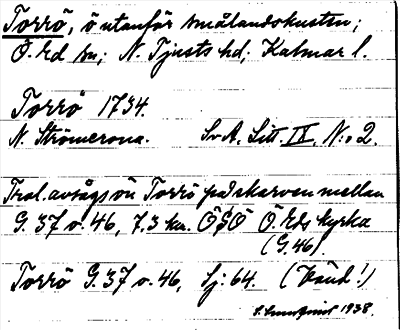 Torrö, ö utanför smålandskusten;
Ö. Ed sn; N. Tjusts hd; Kalmar l.
Torrö 1734.
N. Strömerona. Sv. A. Litt. IX, N:o 2.
Trol. avsågs ön Torrö på skarven mellan
G. 37 o. 46, 7.3 km. ÖSÖ Ö. Eds kyrka
(G. 46).
Torrö G. 37 o. 46, Sj: 64. (Känd!)
1938.